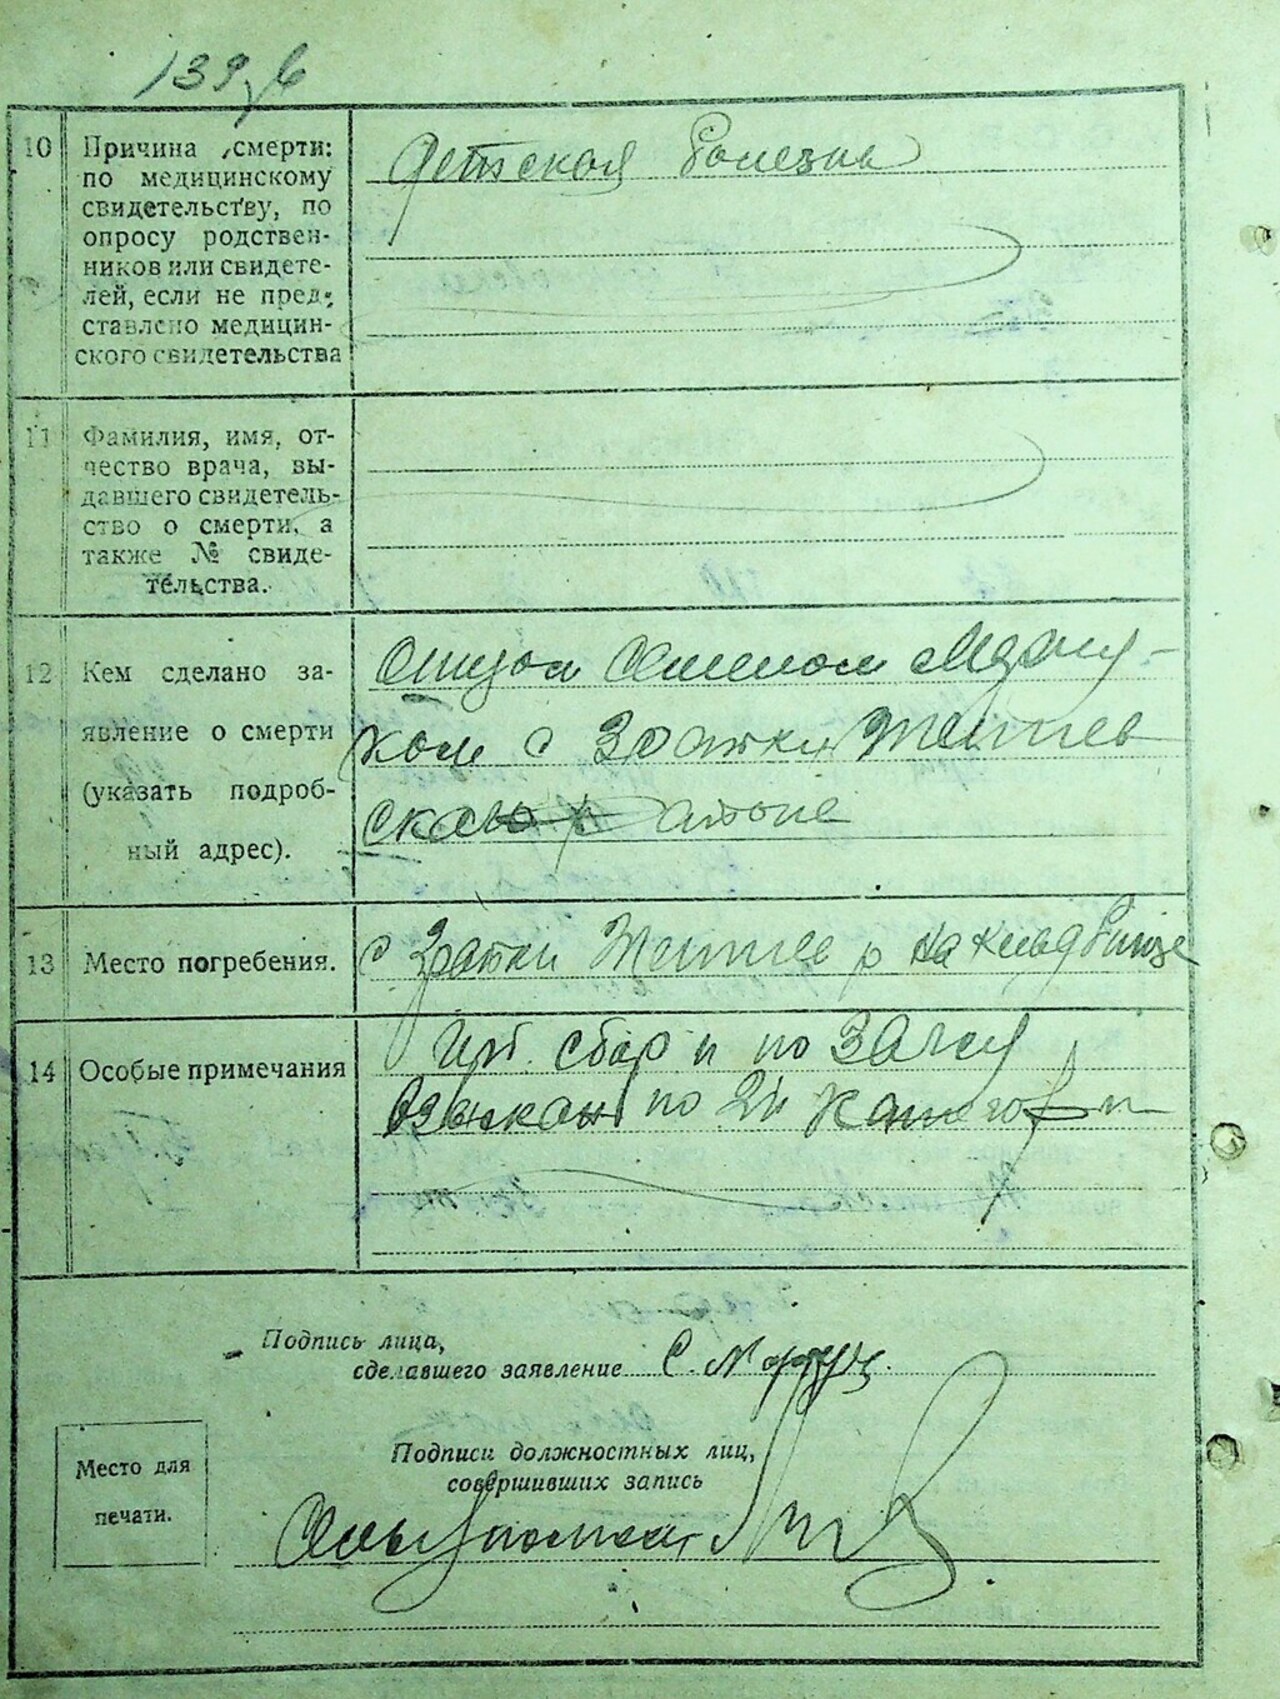 139
10 Причина смерти:
по медицинскому
свидетельству, по
опросу родствен-
ников или свидете-
лей, если не пред-
ставлено медицин-
ского свидетельства
Детская болезнь
11 Фамилия, имя, от-
чество врача, вы-
давшего свидетель-
ство о смерти, а
также № свиде-
тельства.
12 Кем сделано за-
явление о смерти
(указать подроб-
ный адрес).
Отцом
ком с
13 Место погребения.
с на кладбище
14 Особые примечания
сбор и по Загсу
взыскан по 2й категории
Подпись лица,
сделавшего заявление С.
Место для
печати.
Подписи должностных лиц,
совершивших запись